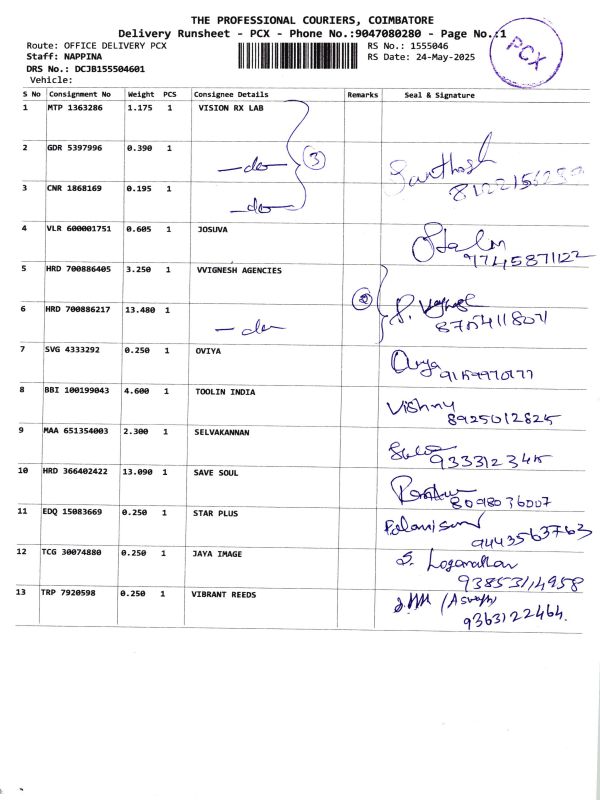 THE PROFESSIONAL COURIERS, COIMBATORE
Delivery Runsheet - PCX - Phone No.:9047080280 - Page No.:1
Route: OFFICE DELIVERY PCX RS No.: 1555046
Staff: NAPPINA RS Date: 24-May-2025
DRS No.: DCJB155504601
Vehicle:
PCX
S No Consignment No Weight PCS Consignee Details Remarks Seal & Signature
1 MTP 1363286 1.175 1 VISION RX LAB
2 GDR 5397996 0.390 1 —do— 3 Santhosh
3 CNR 1868169 0.195 1 —do—
4 VLR 600001751 0.605 1 JOSUVA
9745871122
5 HRD 700886405 3.250 1 VVIGNESH AGENCIES 2
6 HRD 700886217 13.480 1 —do—
7 SVG 4333292 0.250 1 OVIYA
8 BBI 100199043 4.600 1 TOOLIN INDIA Vishnu
8925012825
9 MAA 651354003 2.300 1 SELVAKANNAN
933312345
10 HRD 366402422 13.090 1 SAVE SOUL
8098036007
11 EDQ 15083669 0.250 1 STAR PLUS
9443563763
12 TCG 30074880 0.250 1 JAYA IMAGE S. Loganathan
93853114958
13 TRP 7920598 0.250 1 VIBRANT REEDS
9363122464.